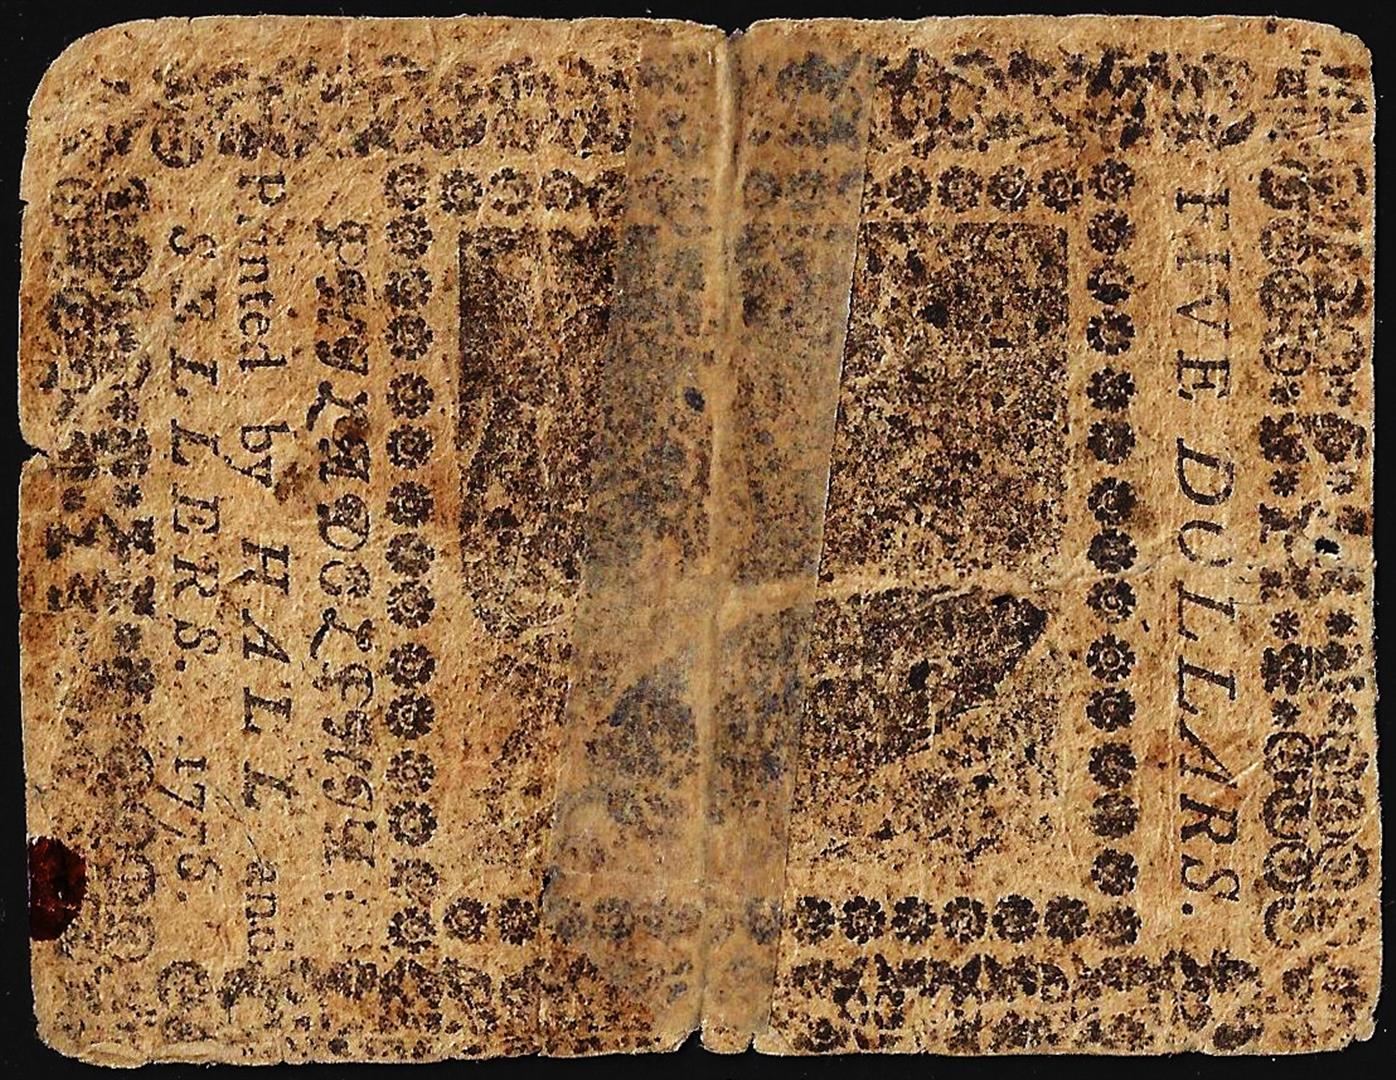 FIVE DOLLARS.
PHILADELPHIA:
Printed by HALL and
SELLERS. 1775.